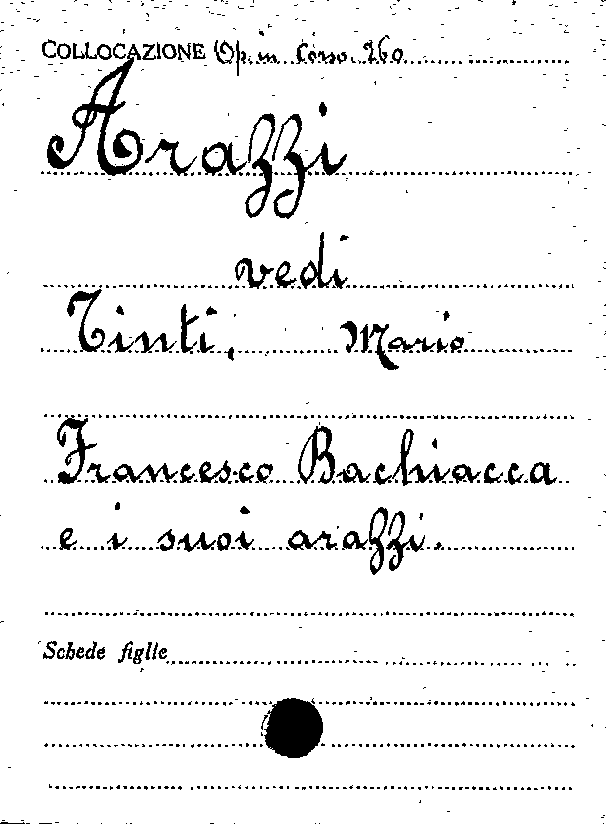 COLLOCAZIONE Op. in Corso. 260
Arazzi
vedi
Tinti, Mario
Francesco Bachiacca
e i suoi arazzi.
Schede figlie